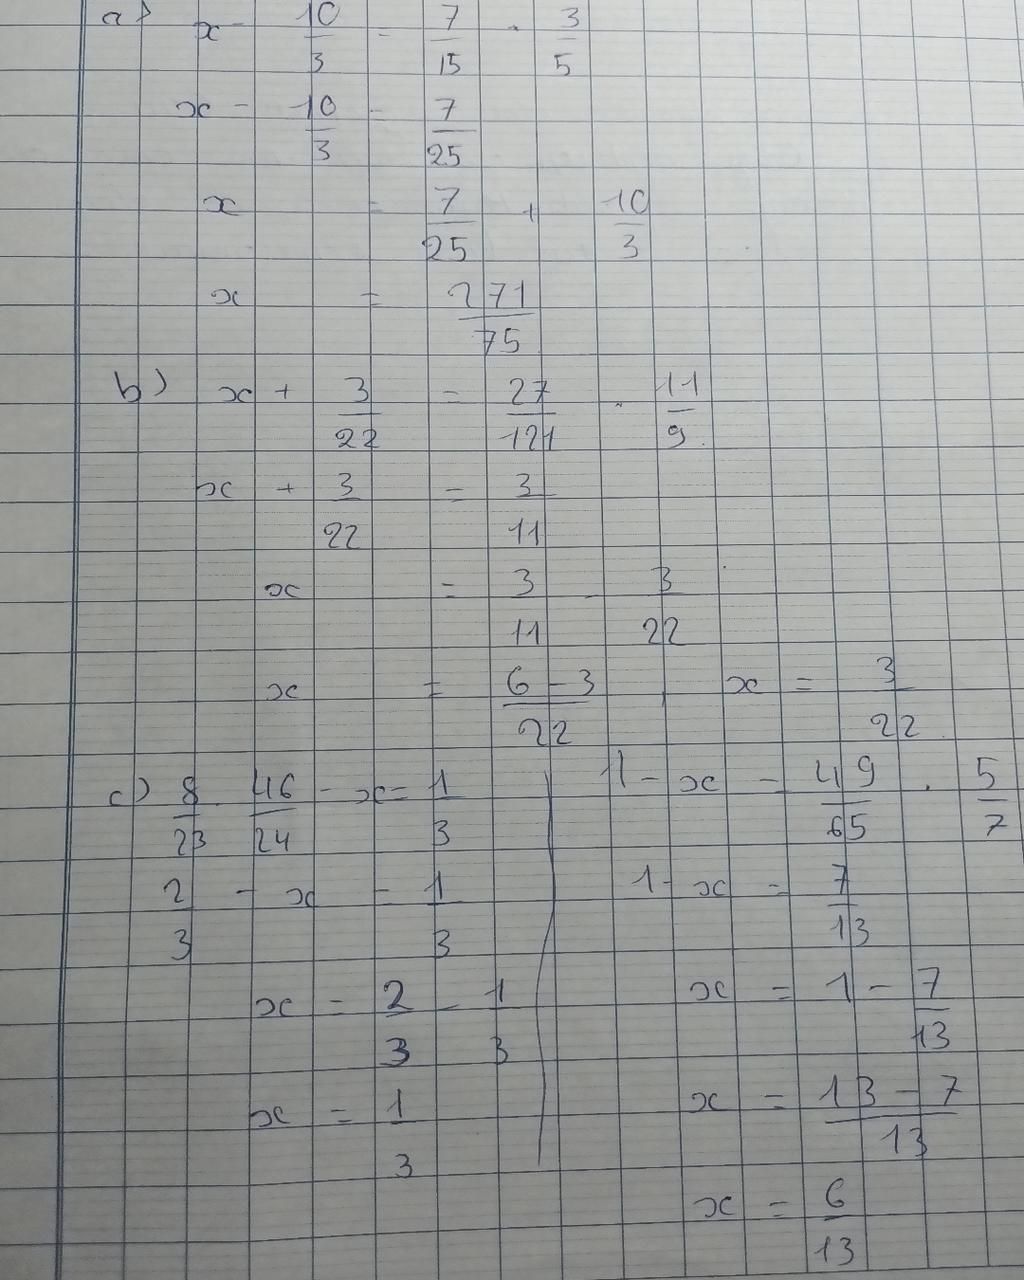 a) x - 10/3 = 7/15 . 3/5
x - 10/3 = 7/25
x = 7/25 + 10/3
x = 271/75
b) x + 3/22 = 27/121 . 11/9
x + 3/22 = 3/11
x = 3/11 - 3/22
x = 6-3/22 , x = 3/22
c) 8/23 . 46/24 - x = 1/3
2/3 - x = 1/3
x = 2/3 - 1/3
x = 1/3
1 - x = 49/65 . 5/7
1 - x = 7/13
x = 1 - 7/13
x = 13-7/13
x = 6/13